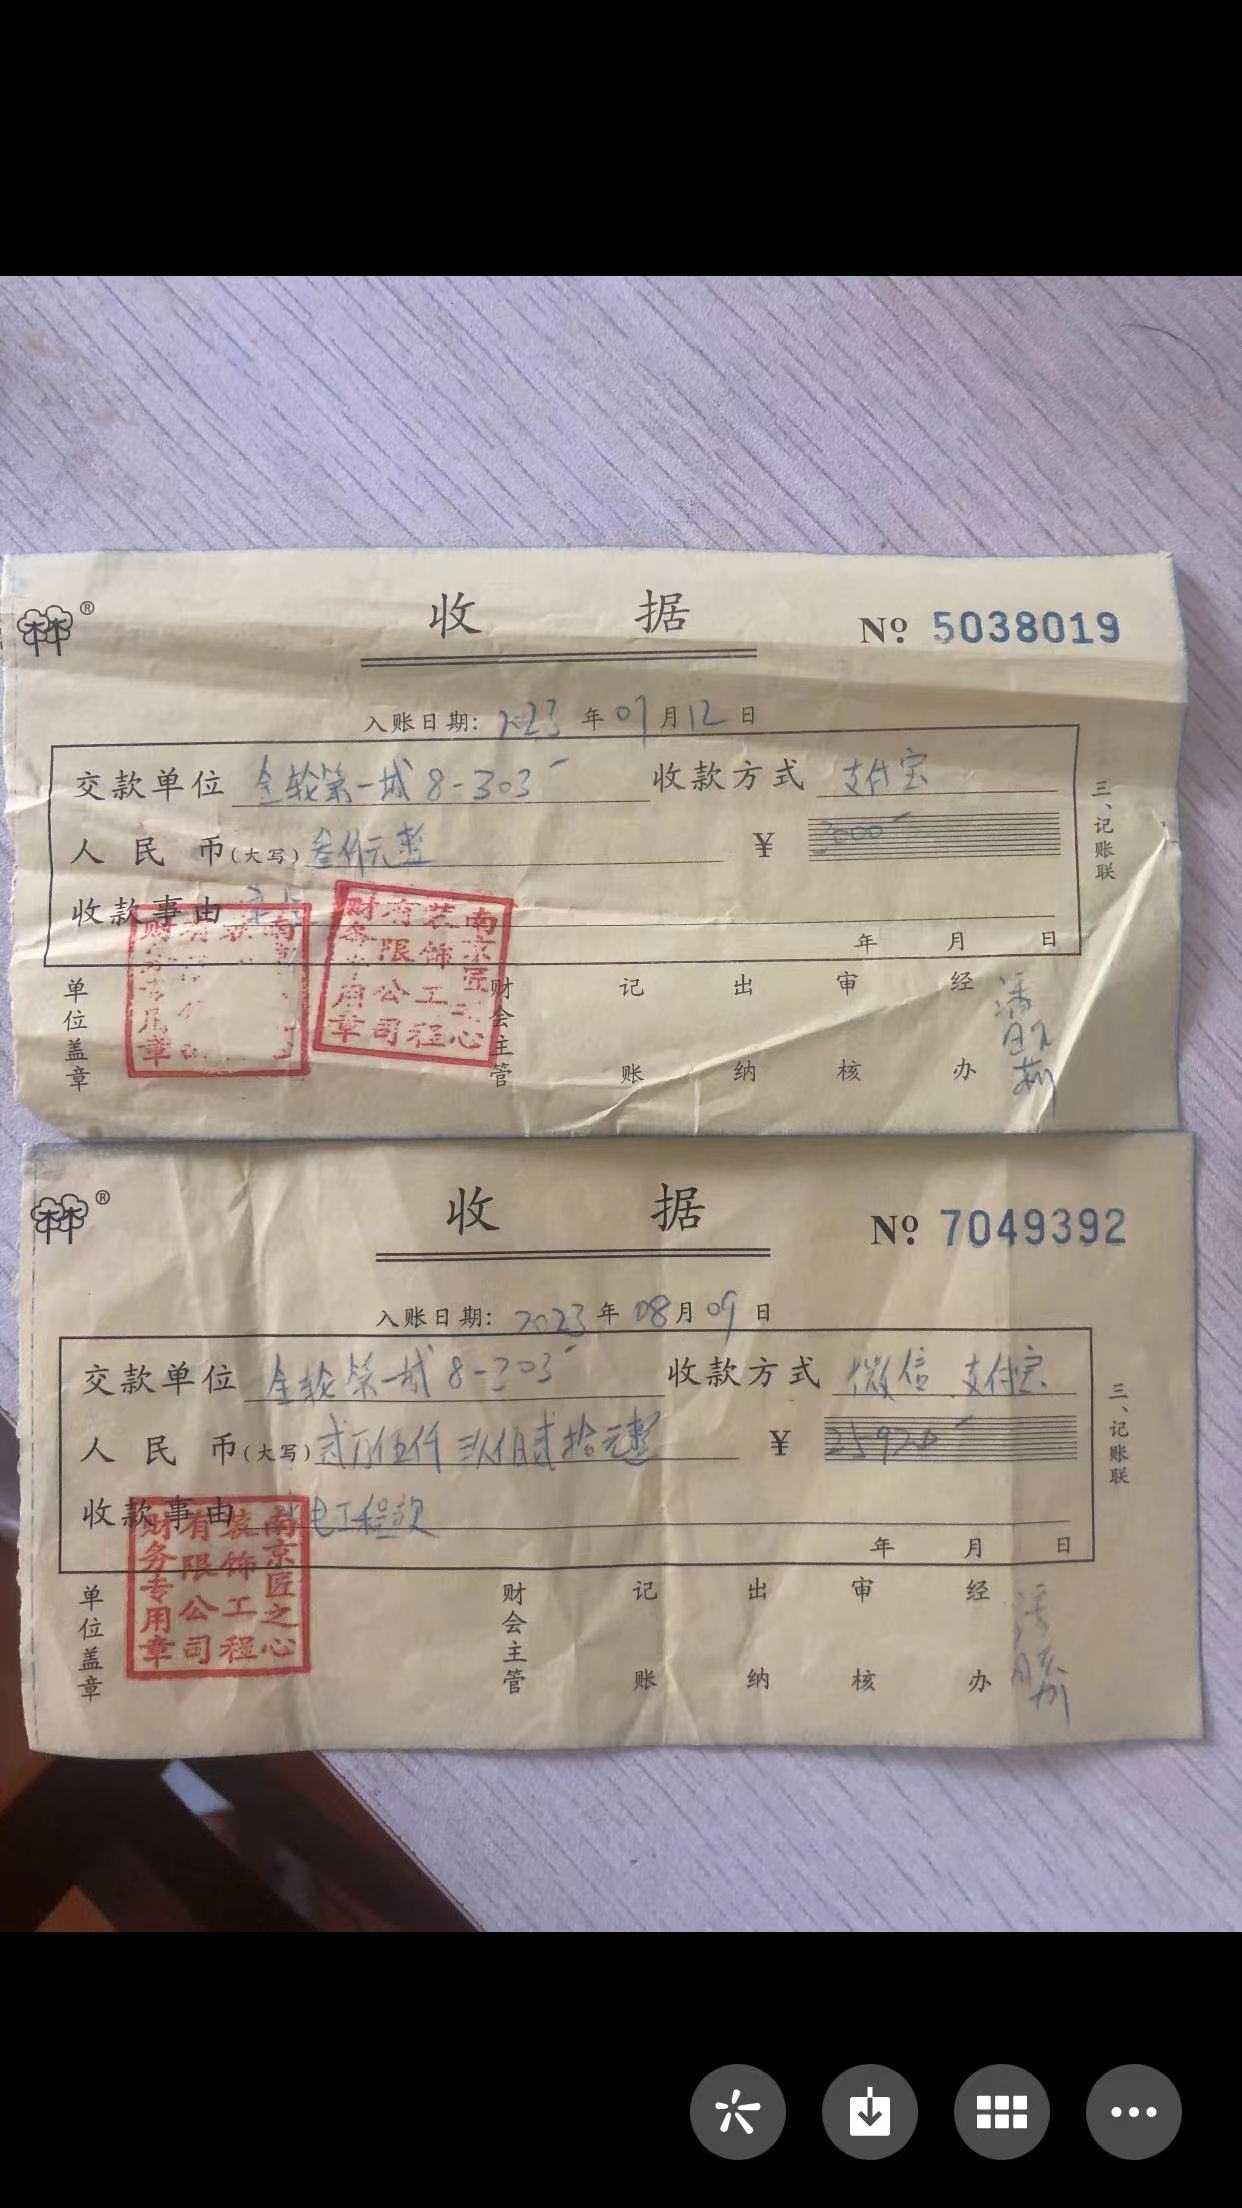 ®
收据
№ 5038019
入账日期: 2023 年 07 月 12 日
交款单位 金轮第一城 8-303 收款方式 支付宝
人民币(大写) 叁仟元整 ¥ 3000
收款事由
年 月 日
三、记账联
单位盖章
财会主管
记账
出纳
审核
经办
南京匠之心装饰工程有限公司财务专用章
®
收据
№ 7049392
入账日期: 2023 年 08 月 09 日
交款单位 金轮第一城 8-303 收款方式 微信 支付宝
人民币(大写) 贰万伍仟玖佰贰拾元整 ¥ 25920
收款事由 水电工程款
年 月 日
三、记账联
单位盖章
财会主管
记账
出纳
审核
经办
南京匠之心装饰工程有限公司财务专用章